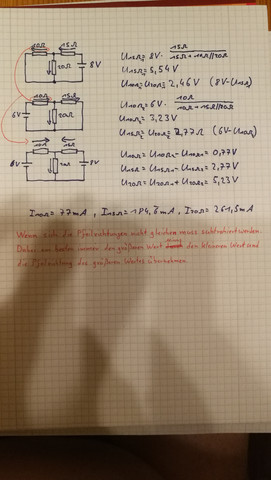 10Ω 15Ω
20Ω 8V
U15Ω = 8V · 15Ω / 15Ω + 10Ω//20Ω
U15Ω = 5,54V
U10Ω = U20Ω = 2,46V (8V-U15Ω)
10Ω 15Ω
6V 20Ω
U10Ω = 6V · 10Ω / 10Ω + 15Ω//20Ω
U10Ω = 3,23V
U15Ω = U20Ω = 2,77Ω (6V-U10Ω)
10Ω 15Ω
6V 8V
U10Ω = U10Ω1 - U10Ω2 = 0,77V
U15Ω = U15Ω1 - U15Ω2 = 2,77V
U20Ω = U20Ω1 + U20Ω2 = 5,23V
I10Ω = 77mA , I15Ω = 184,6mA , I20Ω = 261,5mA
Wenn sich die Pfeilrichtungen nicht gleichen muss subtrahiert werden.
Dabei am besten immer den größeren Wert den kleineren Wert und
die Pfeilrichtung des größeren Wertes übernehmen.